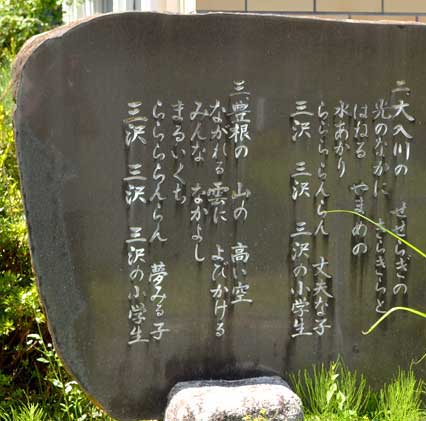 二 大入川の せせらぎの
光のなかに きらきらと
はねる やまめの
水あかり
らららららんらん 丈夫な子
三沢 三沢 三沢の小学生
三 豊根の 山の 高い空
ながれる 雲に よびかける
みんな なかよし
まるいくち
らららららんらん 夢みる子
三沢 三沢 三沢の小学生